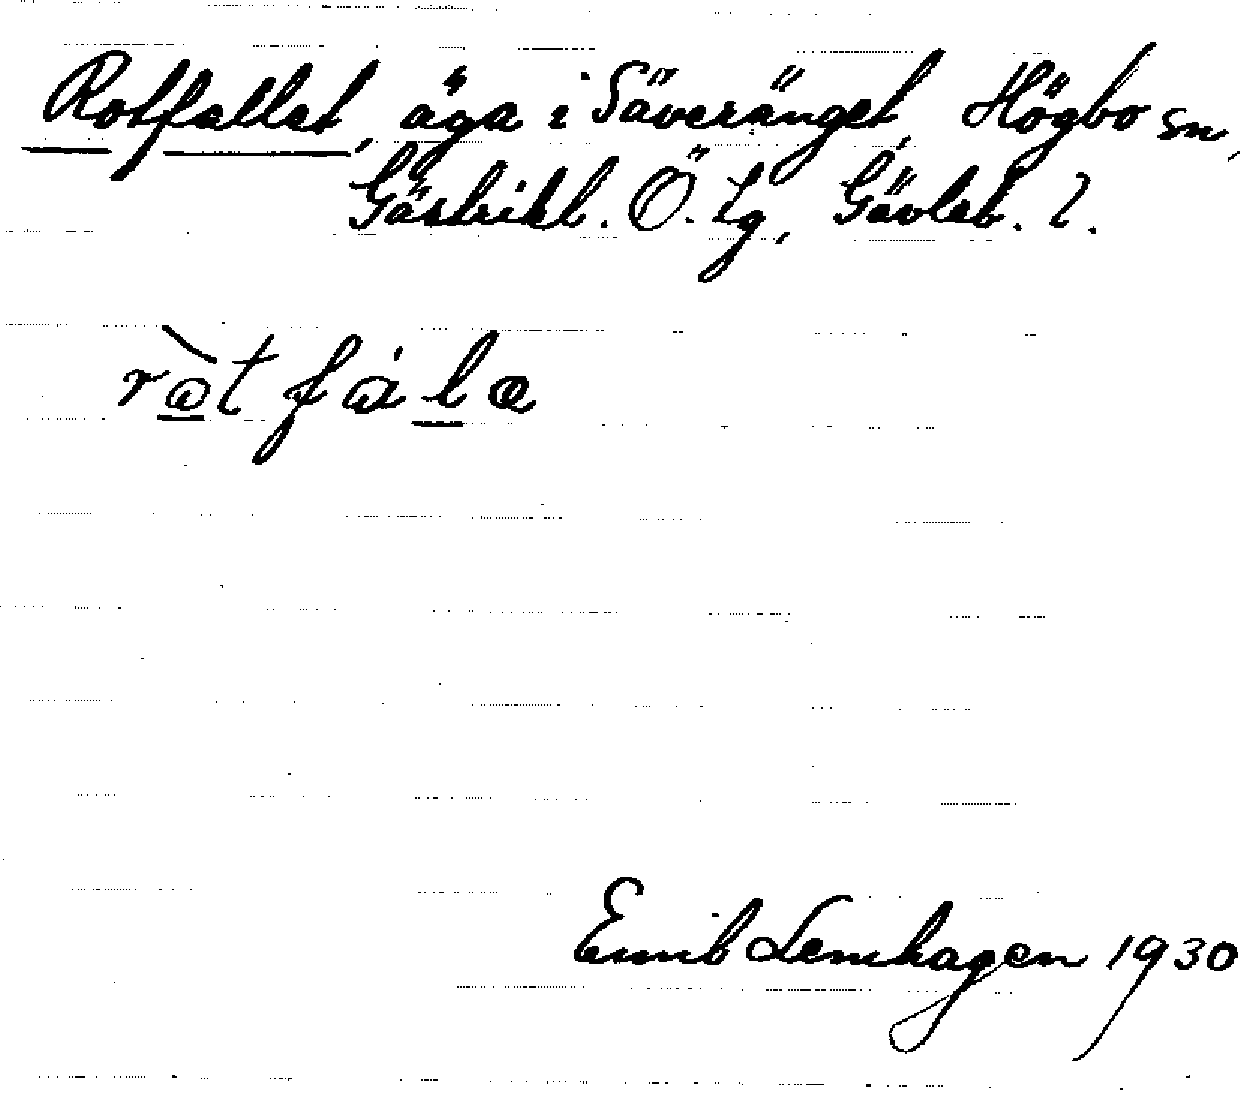 Rotfallet, äga i Säveränget, Högbo sn,
Gästrikl. Ö. Tg, Gävleb. l.
ròtfála
Emil Lemhagen 1930